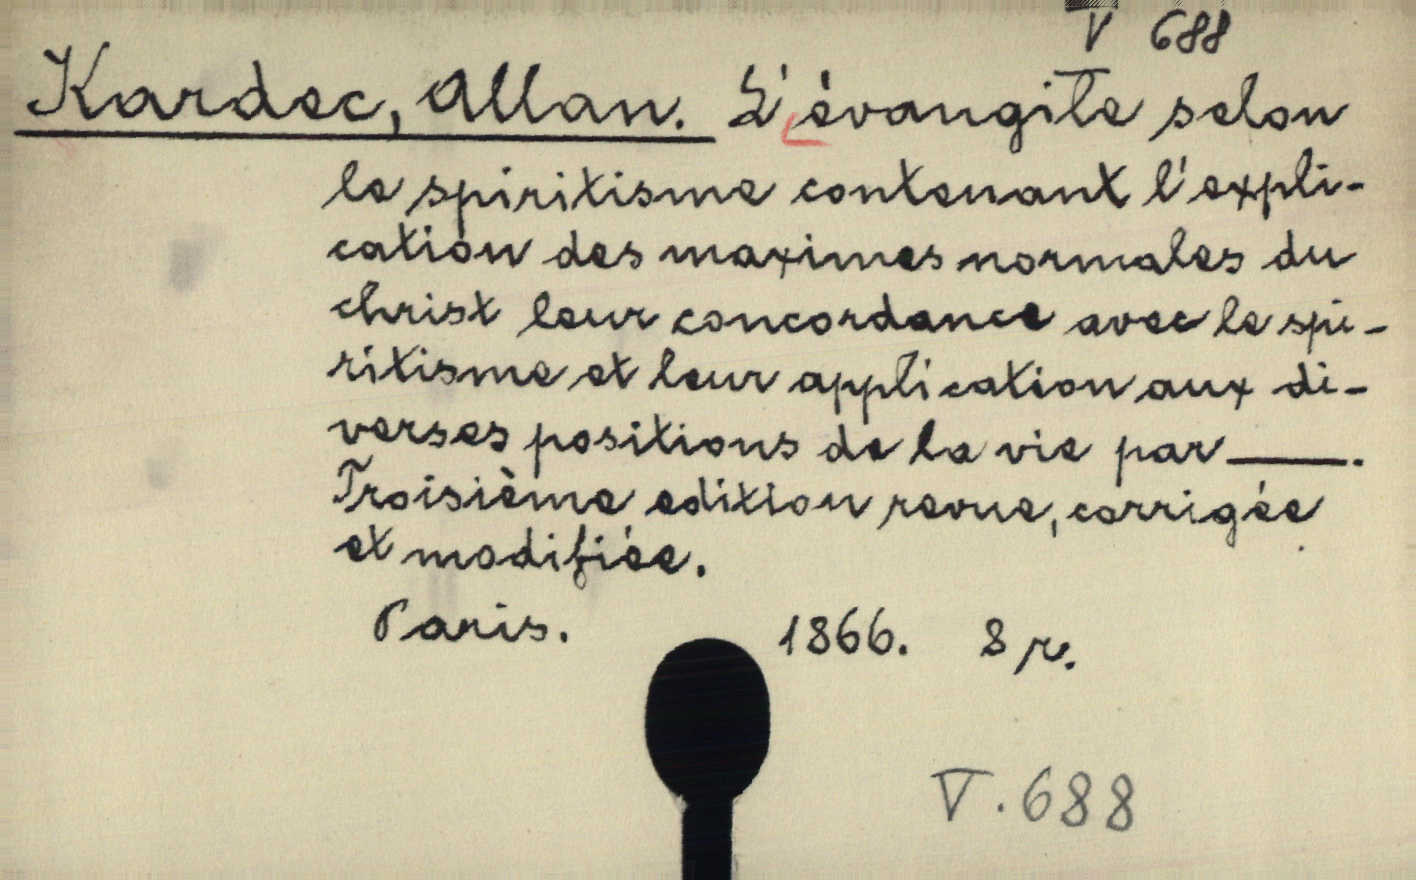 V 688
Kardec, Allan. L'évangile selon
le spiritisme contenant l'expli-
cation des maximes normales du
christ leur concordance avec le spi-
ritisme et leur application aux di-
verses positions de la vie par ——.
Troisième edition revue, corrigée
et modifiée.
Paris. 1866. 8 r.
V. 688